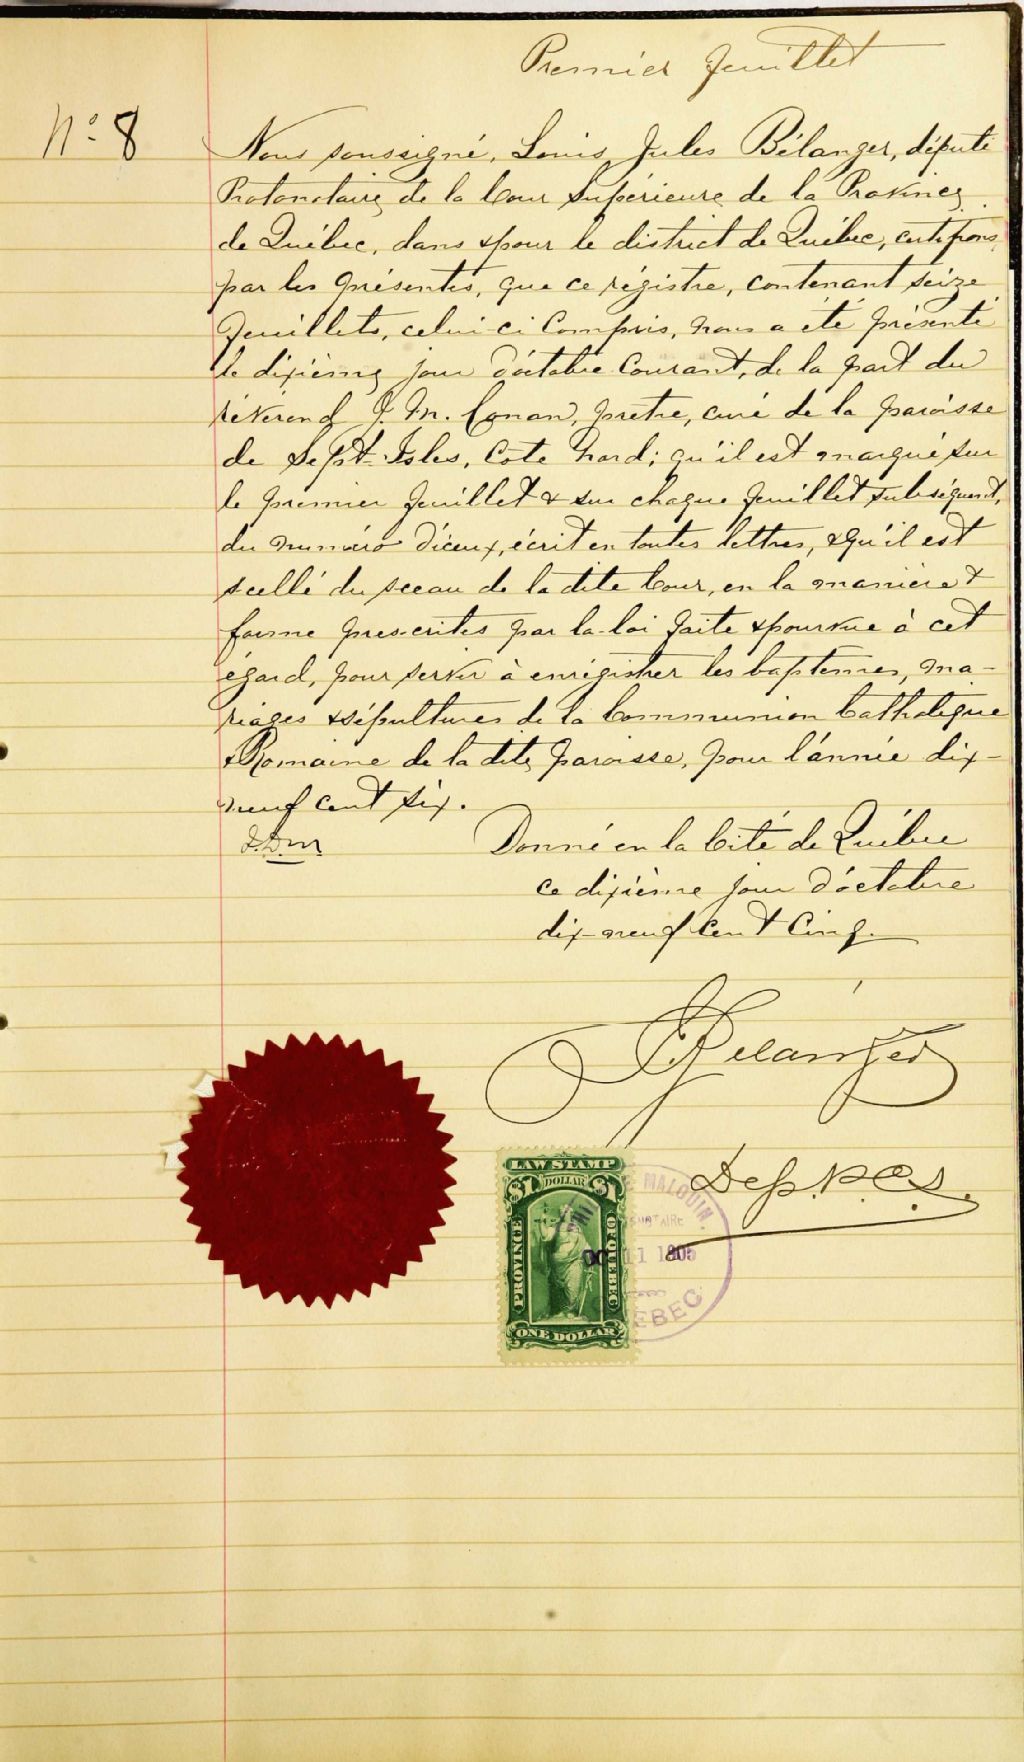 Premier feuillet
No 8
Nous soussigné, Louis Jules Bélanger, député
Protonotaire de la Cour Supérieure de la Province
de Québec, dans & pour le district de Québec, certifions
par les présentes, que ce régistre, contenant seize
feuillets, celui-ci compris, nous a été présenté
le dixième jour d'octobre courant, de la part du
révérend J. M. Conan, prêtre, curé de la paroisse
de Sept-Isles, Côte Nord; qu'il est marqué sur
le premier feuillet & sur chaque feuillet subséquent,
du numéro d'iceux, écrit en toutes lettres, & qu'il est
scellé du sceau de la dite Cour, en la manière &
forme prescrites par la loi faite & pourvue à cet
égard, pour servir à enrégistrer les baptêmes, ma-
riages & sépultures de la Communion Catholique
& Romaine de la dite paroisse, pour l'année dix-
neuf cent six.
Donné en la Cité de Québec
ce dixième jour d'octobre
dix-neuf cent cinq.
Bélanger
Dep. P.C.S.
LAW STAMP
$1 DOLLAR $1
PROVINCE
OF QUEBEC
ONE DOLLAR
MALOUIN
OC 11 1905
EBEC